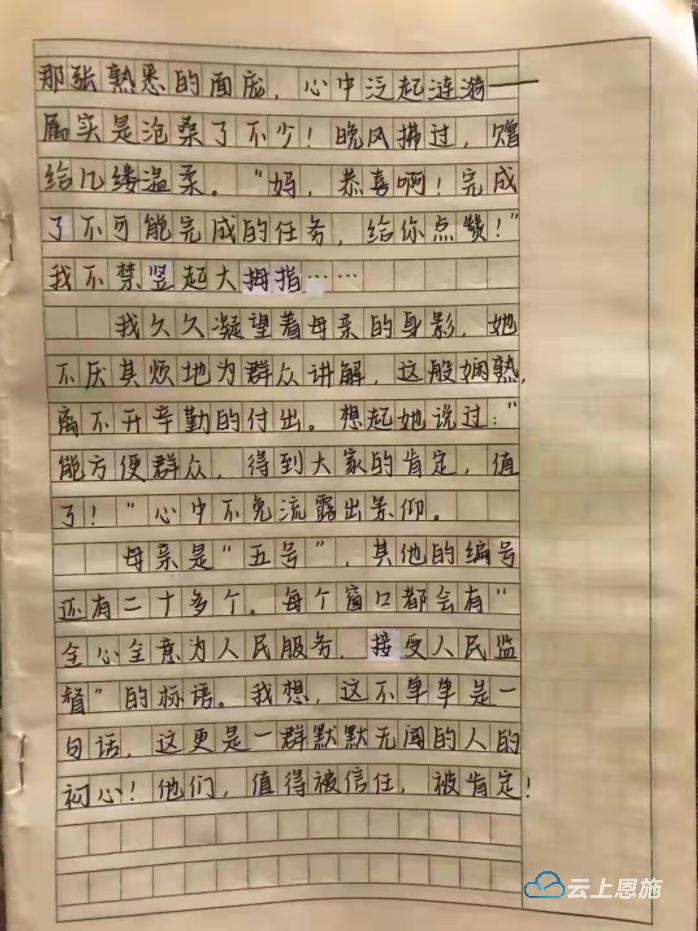 那张熟悉的面庞，心中泛起涟漪——
属实是沧桑了不少！晚风拂过，赠
给几缕温柔。“妈，恭喜啊！完成
了不可能完成的任务，给你点赞！”
我不禁竖起大拇指……
我久久凝望着母亲的身影，她
不厌其烦地为群众讲解，这般娴熟，
离不开辛勤的付出。想起她说过：“
能方便群众，得到大家的肯定，值
了！”心中不免流露出景仰。
母亲是“五号”，其他的编号
还有二十多个。每个窗口都会有“
全心全意为人民服务，接受人民监
督”的标语。我想，这不单单是一
句话，这更是一群默默无闻的人的
初心！他们，值得被信任，被肯定！
云上恩施